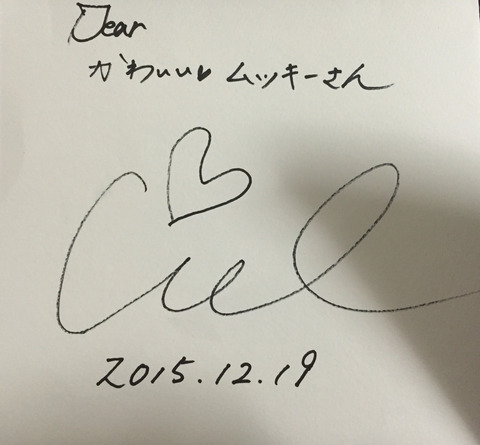 Dear
かわいい♥ ムッキーさん
Ciel
2015.12.19